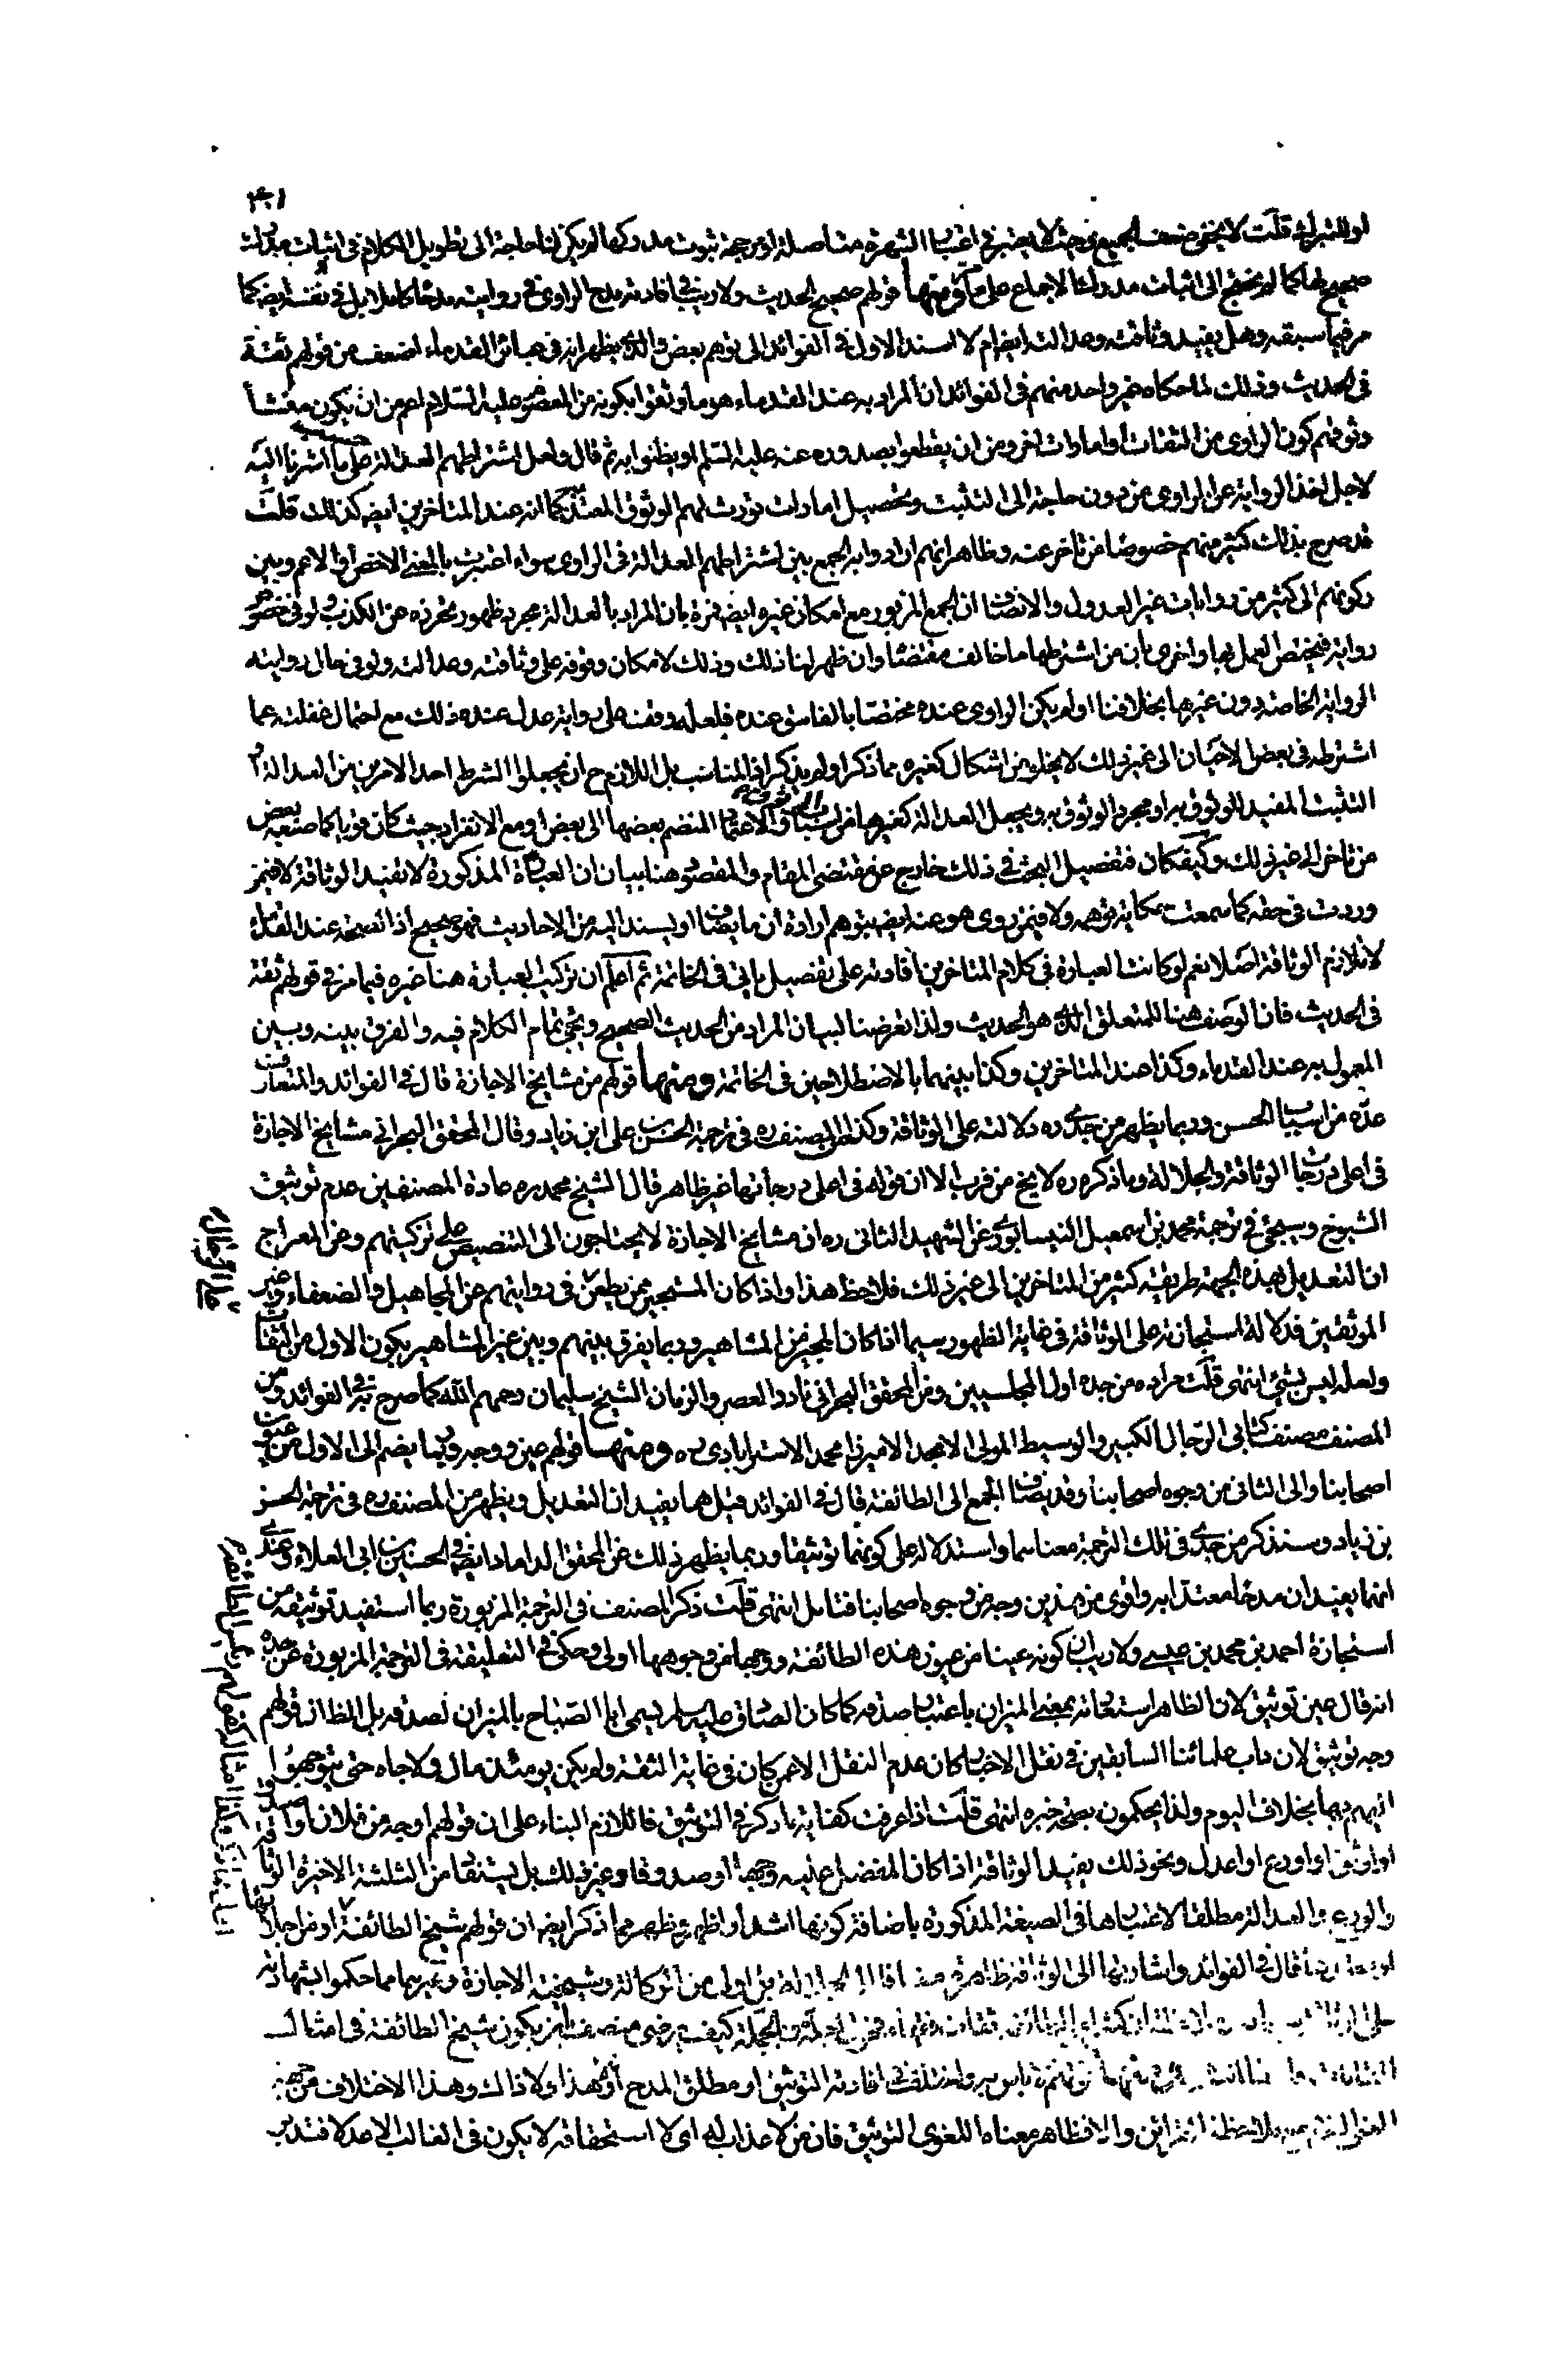 او للشهرة قلت لا يخفى ضعف الجميع بحيث لا يعتبر في اعتبار الشهرة متاصلة او من جهة ثبوت مدركها لم يكن لنا حاجة الى تطويل الكلام في اثبات مدرك
صحيح لها كما لم نحتج الى اثبات مدرك الاجماع على ما مر ومنها قولهم صحيح الحديث ولا ريب في افادته مدح الراوي في روايته مدحا كاملا بل في نفسه ايضا كما
مر فيما سبقه وهل يفيد وثاقته وعدالته ايضا ام لا اسند الاول في الفوائد الى توهم بعض والذي يظهر انه في عبائر القدماء اضعف من قولهم ثقة
في الحديث وذلك لما حكاه غير واحد منهم في الفوائد ان المراد به عند القدماء هو ما وثقوا بكونه من المعصوم عليه السلام اعم من ان يكون منشأ
وثوقهم كون الراوي من الثقات أو امارات اخر ومن ان يقطعوا بصدوره عنه عليه السلم او يظنوا به ثم قال ولعل اشتراطهم العدالة على ما اشرنا اليه
لاجل اخذ الرواية عن الراوي من دون حاجة الى التثبت وتحصيل امارات تورث لهم الوثوق المعتد به كما انه عند المتاخرين ايضا كذلك قلت
قد صرح بذلك كثير منهم خصوصا من تاخر عنه وظاهر انهم ارادوا به الجمع بين اشتراطهم العدالة في الراوي سواء اعتبرت بالمعنى الاخص أو الاعم وبين
ركونهم الى كثير من روايات غير العدول والانصاف ان الجمع المزبور مع امكان غيره ايضا فمرة بان المراد بالعدالة مجرد ظهور تحرزه عن الكذب ولو في خصوص
رواية فيختص العمل بها واخرى بان من اشترطها ما خالف مقتضاها وان ظهر لنا ذلك وذلك لامكان وقوفه على وثاقته وعدالته ولو في حال روايته
الرواية الخاصة دون غيرها بخلافنا او لم يكن الراوي عنده مختصا بالفاسق عنده فلعله وقف على رواية عدل عنده ذلك مع احتمال غفلته عما
اشترطه في بعض الاحيان الى غير ذلك لا يخلو من اشكال كغيره مما ذكر او لم يذكر اذ المناسب بل اللازم ح ان يجعلوا الشرط احد الامرين من العدالة و
التثبت المفيد للوثوق به او مجرد الوثوق به ويجعل العدالة كغيرها من اسباب الوثوق والاعتماد المنضم بعضها الى بعض او مع الانفراد حيث كان قويا كما صنعه بعض
من تاخر الى غير ذلك وكيف كان فتفصيل البحث في ذلك خارج عن مقتضى المقام والمقصود هنا بيان ان العبارة المذكورة لا تفيد الوثاقة لا فيمن
وردت في حقه كما سمعت حكاية توهمه ولا فيمن روى هو عنه ايضا بتوهم ارادة ان ما يضاف او يسند اليه من الاحاديث فهو صحيح اذ الصحة عند القدماء
لا تلازم الوثاقة اصلا نعم لو كانت العبارة في كلام المتاخرين أفادته على تفصيل ياتي في الخاتمة ثم اعلم ان تركيب العبارة هنا غيره فيما مر في قولهم ثقة
في الحديث فان الوصف هنا للمتعلق الذي هو الحديث ولذا تعرضنا لبيان المراد من الحديث الصحيح ويجئ تمام الكلام فيه والفرق بينه وبين
المعمول به عند القدماء وكذا عند المتاخرين وكذا بينهما بالاصطلاحين في الخاتمة ومنها قولهم من مشايخ الاجازة قال في الفوائد والمتعارف
عده من اسباب الحسن وربما يظهر من جدي ره دلالته على الوثاقة وكذا المصنف ره في ترجمة الحسن بن علي ابن زياد وقال المحقق البحراني مشايخ الاجازة
في اعلى درجات الوثاقة والجلالة وما ذكره ره لا يخ من قرب الا ان قوله في اعلى درجاتها غير ظاهر قال الشيخ محمد ره عادة المصنفين عدم توثيق
الشيوخ وسيجئ في ترجمة محمد بن اسمعيل النيسابوري عن الشهيد الثاني ره ان مشايخ الاجازة لا يحتاجون الى التنصيص على تزكيتهم وعن المعراج
ان التعديل بهذه الجهة طريقة كثير من المتاخرين الى غير ذلك فلاحظ هذا واذا كان المستجيز ممن يطعن في روايتهم عن المجاهيل والضعفاء وغير
الموثقين فدلالة استجازته على الوثاقة في غاية الظهور سيما اذا كان المجيز من المشاهير وربما يفرق بينهم وبين غير المشاهير بكون الاول من الثقات
ولعله ليس بشئ انتهى قلت مراده من جده اول المجلسيين ومن المحقق البحراني نادر العصر والزمان الشيخ سليمان رحمهم الله كما صرح به في الفوائد ومن
المصنف مصنف كتابي الرجال الكبير والوسيط المولى الامجد الاميرزا محمد الاسترابادي ره ومنها قولهم عين ووجه وربما يضم الى الاول من عيون
اصحابنا والى الثاني من وجوه اصحابنا وقد يضاف الجمع الى الطائفة قال في الفوائد قيل هما يفيدان التعديل ويظهر من المصنف ره في ترجمة الحسن
بن زياد وسنذكر من جدي في تلك الترجمة معناهما واستدلاله على كونهما توثيقا وربما يظهر ذلك عن المحقق الداماد ايضا في الحسين بن ابي العلاء وعندي
انهما يفيدان مدحا معتدا به واقوى من هذين وجه من وجوه اصحابنا فتامل انتهى قلت ذكر المصنف في الترجمة المزبورة ربما استفيد توثيقه من
استجازة احمد بن محمد بن عيسى ولا ريب ان كونه عينا من عيون هذه الطائفة ووجها من وجوهها اولى وحكى في التعليقة في الترجمة المزبورة عن جده
انه قال عين توثيق لان الظاهر استعارته بمعنى الميزان باعتبار صدقه كما كان الصادق عليه السلم يسمى ابا الصباح بالميزان لصدقه بل الظاهر ان قولهم
وجه توثيق لان داب علمائنا السابقين في نقل الاخبار كان عدم النقل الا عمن كان في غاية الثقة ولم يكن يومئذ مال ولا جاه حتى يتوجهوا
اليهم بهما بخلاف اليوم ولذا يحكمون بصحة خبره انتهى قلت اذا عرفت كفاية ما ذكر في التوثيق فاللازم البناء على ان قولهم اوجه من فلان او اصدق
او اوثق او اورع او اعدل ونحو ذلك يفيد الوثاقة اذا كان المفضل عليه وجيها او صدوقا وغير ذلك بل يستفاد من الثلثة الاخيرة الوثاقة
والورع والعدالة مطلقا لاعتبارها في الصيغة المذكورة باضافة كونها اشد أو اظهر ثم ظهر مما ذكر ايضا ان قولهم شيخ الطائفة او من اجلائها
قال في الفوائد واشارتهما الى الوثاقة ظاهرة اولى من الوكالة وشيخية الاجازة وغيرهما مما حكموا بشهادته
كيف يرضى منصف بان يكون شيخ الطائفة في امثال
لا باس به واختلف في افادته التوثيق او مطلق المدح أو لا هذا ولا ذاك وهذا الاختلاف من جهة
بملاحظة القرائن والا فظاهر معناه اللغوي التوثيق فان من لا عذاب له اي لا استحقاقه لا يكون في الغالب الا عدلا فتدبر